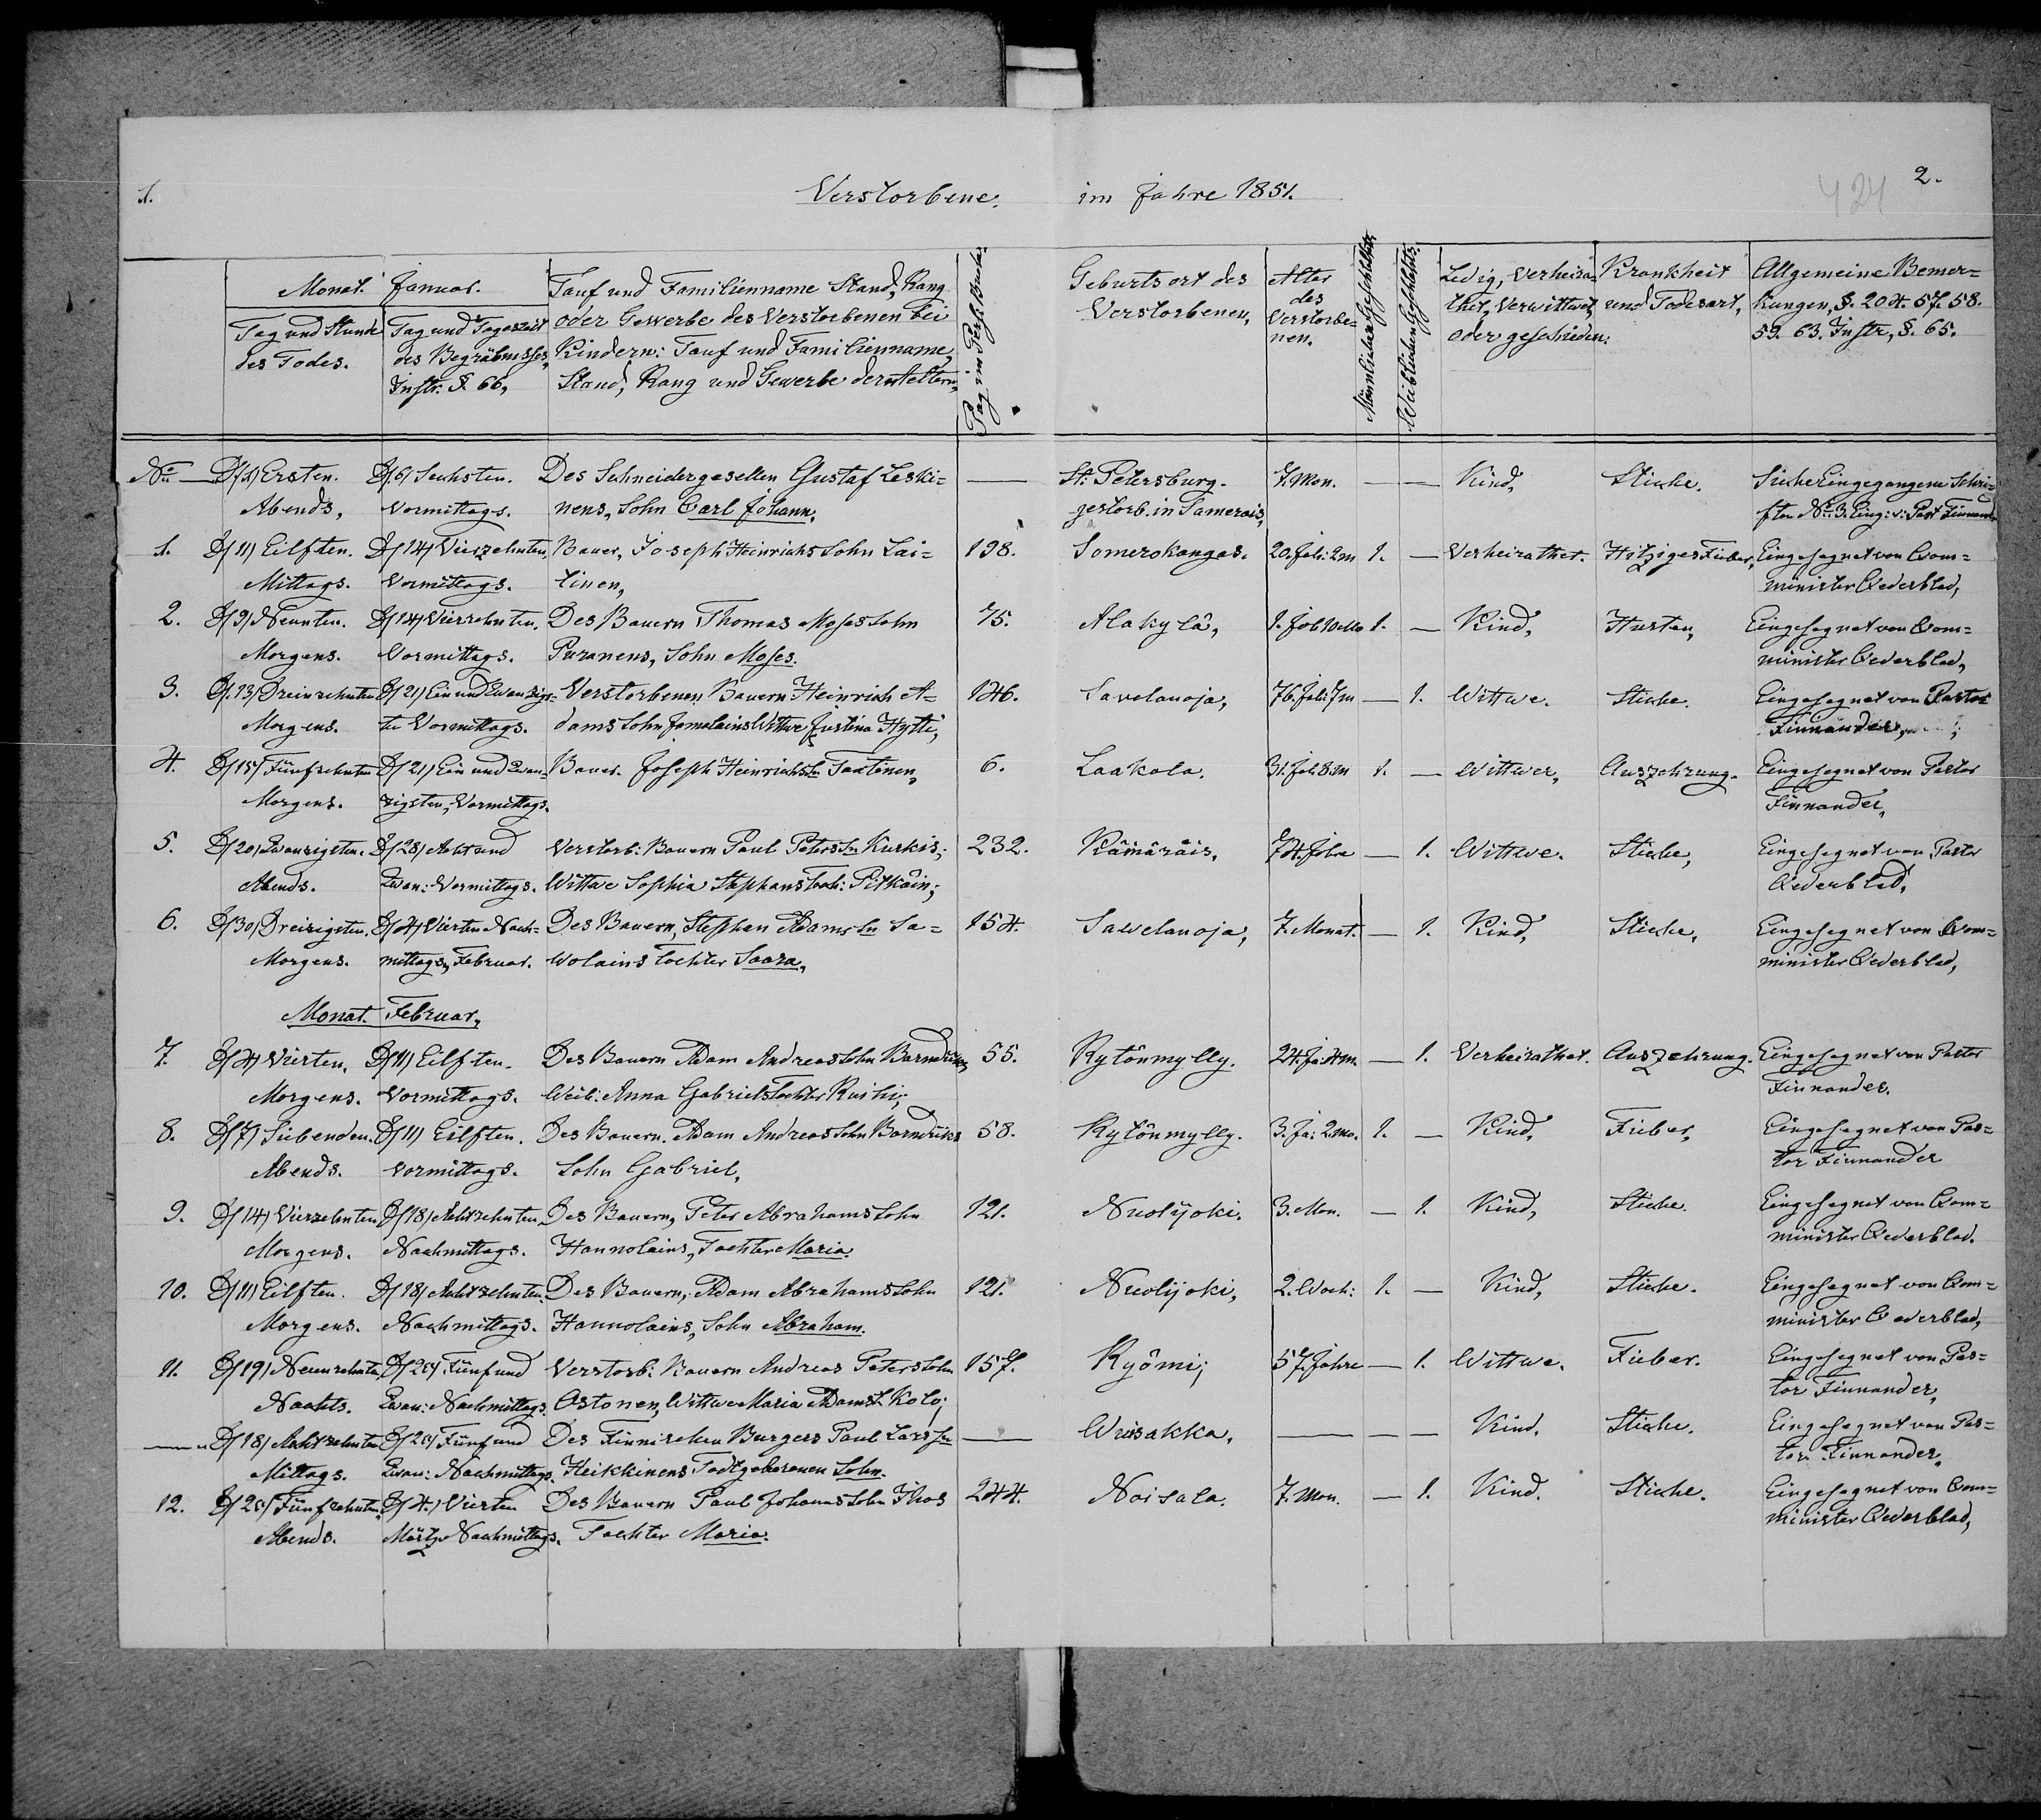 1.
Verstorbene. im Jahre 1851.
424
2.
Monat. Januar.
Tag und Stunde des Todes.
Tag und Tageszeit des Begräbnisses, Instr. §. 66,
Tauf und Familienname Stand, Rang
oder Gewerbe des Verstorbenen bei
Kindern: Tauf und Familienname,
Stand, Rang und Gewerbe der Aeltern,
Pag im Pers. Buche.
Geburtsort des
Verstorbenen,
Alter
des
Verstorbe=
nen.
Männlichen Geschlechts,
Weiblichen Geschlechts,
Ledig, Verheira=
thet, Verwittwet,
oder geschieden.
Krankheit
und Todesart,
Allgemeine Bemer=
kungen, §. 204. 57. 58.
59. 63. Instr, §. 65.
No — D/1) Ersten. D/6) Sechsten. Des Schneidergesellen Gustaf Leski= — St: Petersburg. 7. Mon. — — Kind, Stiche. Siehe Eingegangene Schri=
Abends, Vormittags. nens, Sohn Carl Johann, gestorb. in Samerais, ften No 3. Eing: v: Past Finnander
1. D/11) Eilften. D/14) Vierzehnten, Bauer, Joseph Heinrichs Sohn Lai= 198. Somerokangas. 20. Jah: 2m 1. — Verheirathet. Hitziges Fieber, Eingesegnet von Com=
Mittags. Vormittags. tinen, minister Cederblad,
2. D/9) Neunten. D/14) Vierzehnten. Des Bauern Thomas Moses Sohn 75. Alakylâ, 1. Jah 10 Mo 1. — Kind, Husten, Eingesegnet von Com=
Morgens. Vormittags. Puranens, Sohn Moses. minister Cederblad,
3. D/13) Dreizehnten D/21) Ein und Zwanzigs= Verstorbenen Bauern Heinrich A= 146. Savelanoja, 76. Jah: 7m — 1. Wittwe. Stiche. Eingesegnet von Pastor
Morgens. te Vormittags. dams Sohn Jamalains Wittwe Justina Hytti, Finnander,
4. D/15) Fünfzehnten D/21) Ein und Zwan= Bauer. Joseph Heinrichs Sn Taatinen, 6. Laakola. 31. Jah. 8m 1. — Wittwer, Auszehrung. Eingesegnet von Pastor
Morgens. zigsten, Vormittags. Finnander,
5. D/20) Zwanzigsten. D/28) Acht und Verstorb: Bauern Paul Peters Sn Kurkis, 232. Kâmârâis, 74. Jahre — 1. Wittwe. Stiche, Eingesegnet von Pastor
Abends. Zwan: Vormittags. Wittwe Sophia Stephans Toch: Pitkâin; Cederblad,
6. D/30) Dreizigsten. D/4) Vierten Nach= Des Bauern, Stephan Adams Sn Sa= 154. Sawelanoja, 7. Monat. — 1. Kind, Stiche, Eingesegnet von Com=
Morgens. mittags, Februar. wolains Tochter Saara, minister Cederblad,
Monat. Februar,
7. D/4) Vierten, D/11) Eilften. Des Bauern Adam Andreas Sohn 55. Kytônmylly. 24. Ja: 4m. — 1. Verheirathet. Auszehrung. Eingesegnet von Pastor
Morgens. Vormittags. Weib: Anna Gabriels Tochter Finnander.
8. D/7) Siebenden. D/11) Eilften. Des Bauern. Adam Andreas Sohn 58. Kytônmylly. 3. Ja: 2. mo. 1. — Kind, Fieber, Eingesegnet von Pas=
Abends. Vormittags. Sohn Gabriel, tor Finnander
9. D/14) Vierzehnten D/18) Achtzehnten. Des Bauern, Peter Abrahams Sohn 121. Nuolijoki. 3. Mon. — 1. Kind, Stiche. Eingesegnet von Com=
Morgens. Nachmittags. Hannolains, Tochter Maria. minister Cederblad.
10. D/11) Eilften. D/18) Achtzehnten. Des Bauern, Adam Abrahams Sohn 121. Nuolijoki, 2. Woch: 1. — Kind, Stiche. Eingesegnet von Com=
Morgens. Nachmittags. Hannolains, Sohn Abraham. minister Cederblad,
11. D/19) Neunzehnten D/25) Fünf und Verstorb: Bauern Andreas Peters Sohn 157. Kyômi; 57. Jahre — 1. Wittwe. Fieber. Eingesegnet von Pas=
Nachts. Zwan: Nachmittags. Ostonen, Wittwe Maria Adams T. Kolo; tor Finnander,
— D/18) Achtzehnten D/25) Fünf und Des Finnischen Burgers Paul Lars Sn — Wuisakka, — — — Kind, Stiche. Eingesegnet von Pas=
Mittags. Zwan: Nachmittags. Heikkinens Todtgeborenen Sohn. tor Finnander,
12. D/25) Fünfzehnten, D/4.) Vierten Des Bauern Paul Johanns Sohn Ihas 244. Noisala. 7. Mon. — 1. Kind. Stiche. Eingesegnet von Com=
Abends. März Nachmittags. Tochter Maria. minister Cederblad,